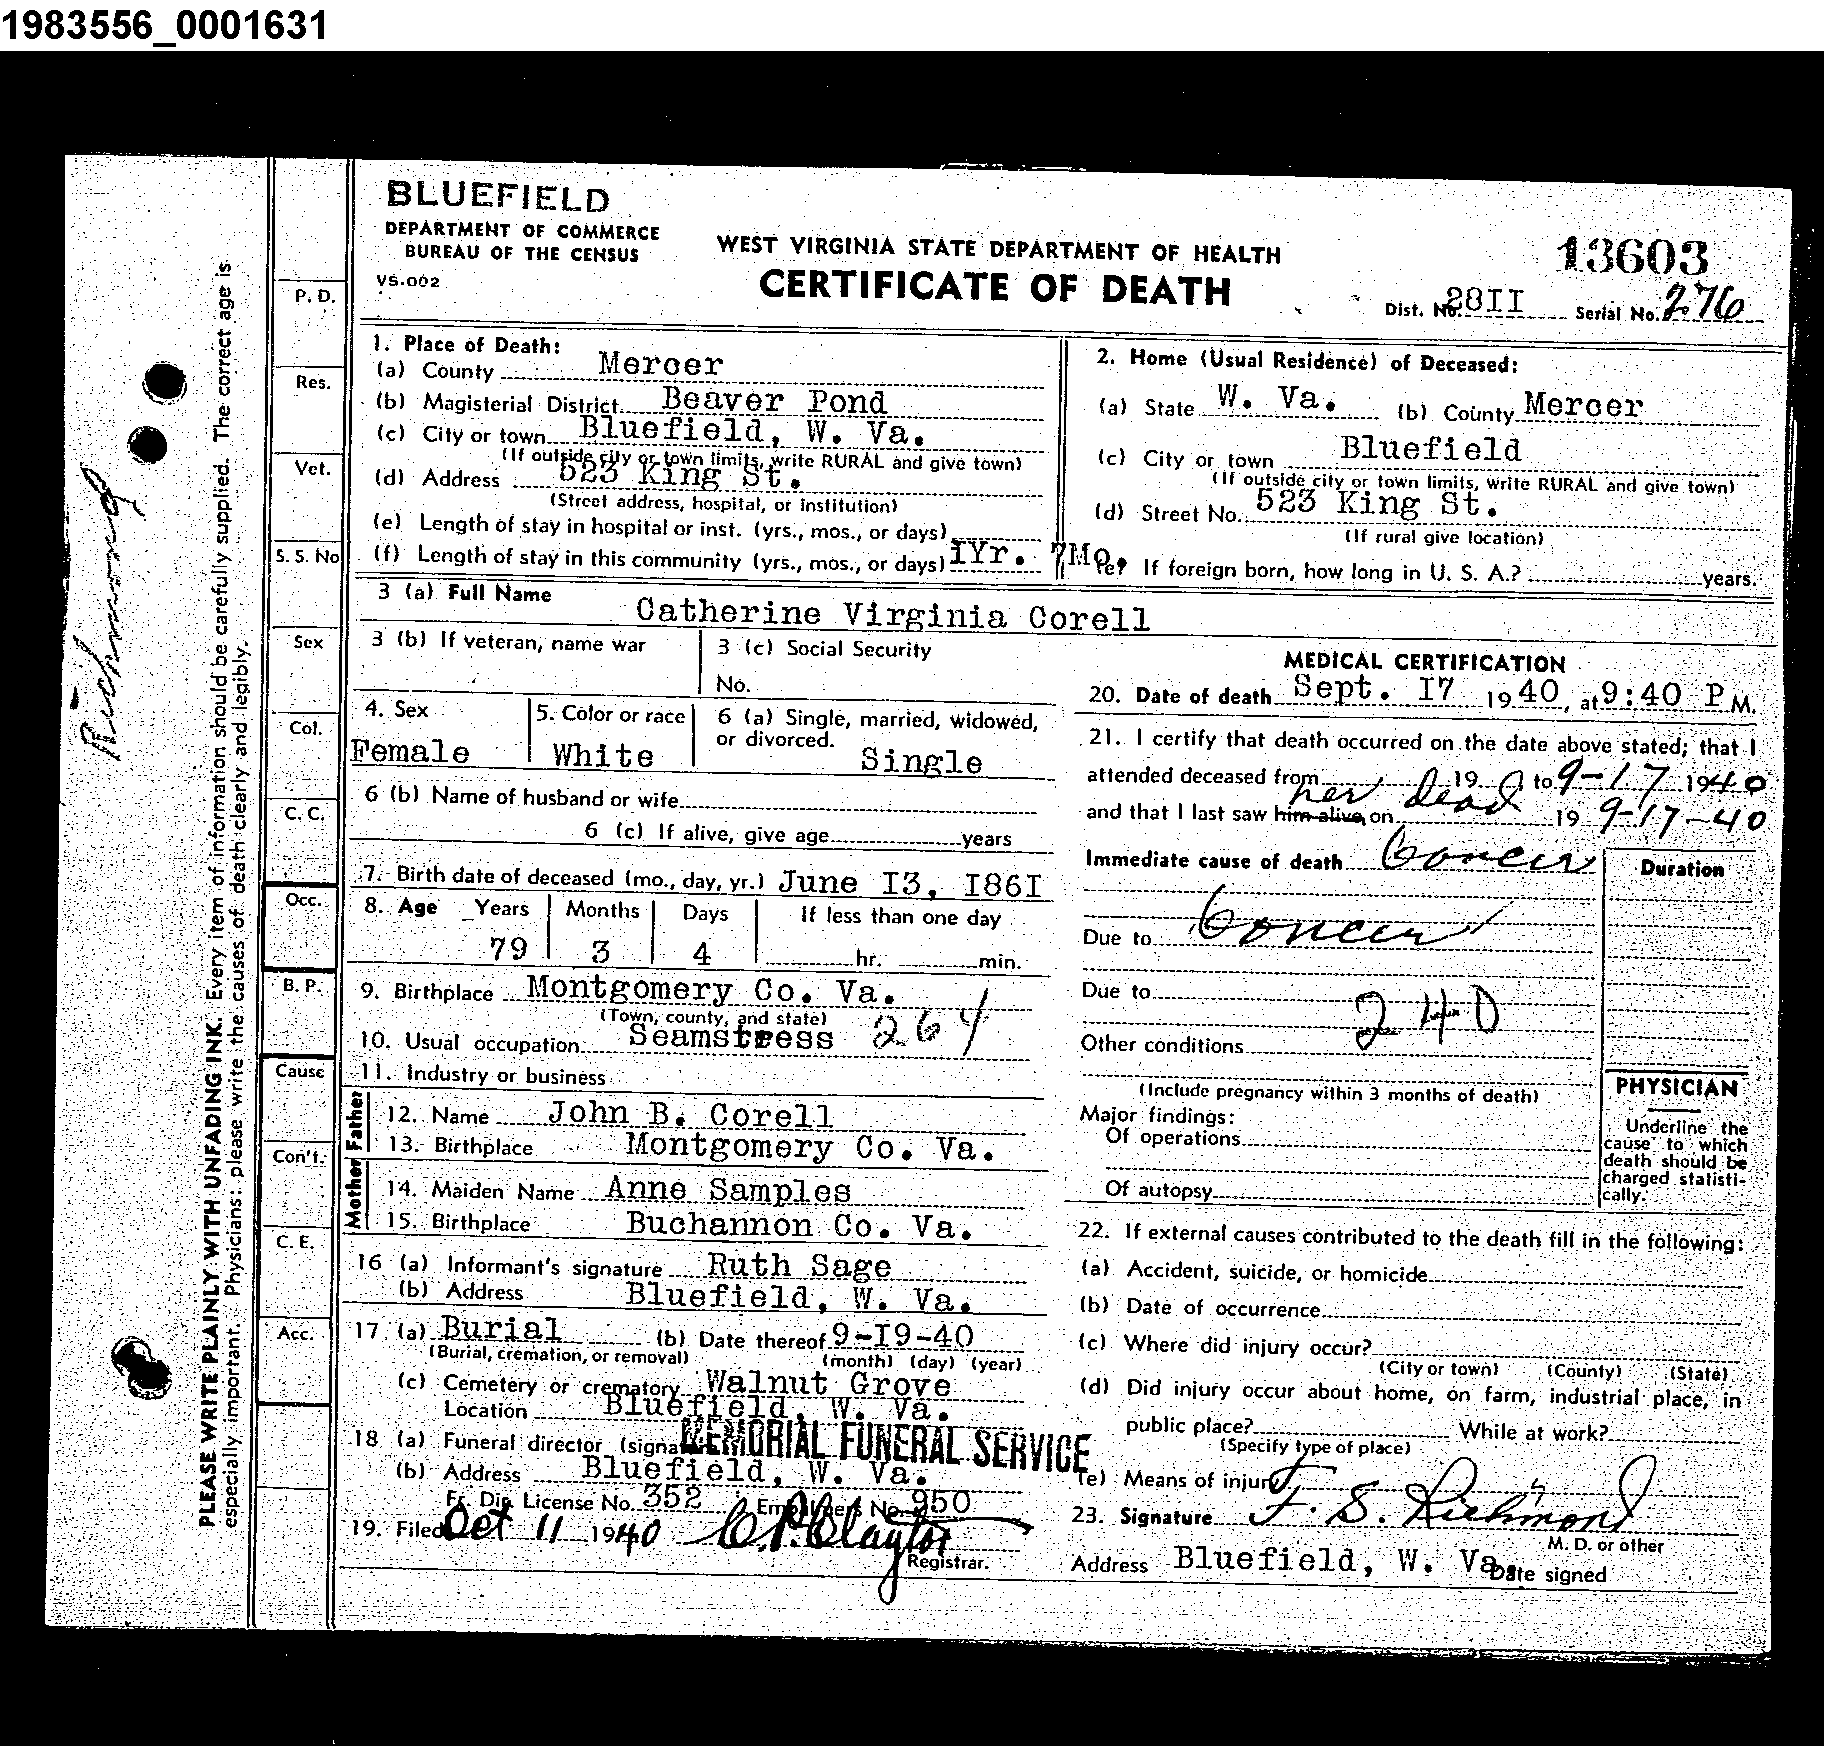 1983556_0001631
BLUEFIELD
DEPARTMENT OF COMMERCE
BUREAU OF THE CENSUS
VS-002
WEST VIRGINIA STATE DEPARTMENT OF HEALTH
CERTIFICATE OF DEATH
13603
Dist. No. 28II Serial No. 276
1. Place of Death:
(a) County Mercer
(b) Magisterial District Beaver Pond
(c) City or town Bluefield, W. Va.
(If outside city or town limits, write RURAL and give town)
(d) Address 523 King St.
(Street address, hospital, or institution)
(e) Length of stay in hospital or inst. (yrs., mos., or days)
(f) Length of stay in this community (yrs., mos., or days) IYr. 7Mo.
2. Home (Usual Residence) of Deceased:
(a) State W. Va. (b) County Mercer
(c) City or town Bluefield
(If outside city or town limits, write RURAL and give town)
(d) Street No. 523 King St.
(If rural give location)
(e) If foreign born, how long in U. S. A.? years.
3 (a) Full Name Catherine Virginia Corell
3 (b) If veteran, name war
3 (c) Social Security
No.
4. Sex
Female
5. Color or race
White
6 (a) Single, married, widowed,
or divorced.
Single
6 (b) Name of husband or wife
6 (c) If alive, give age years
7. Birth date of deceased (mo., day, yr.) June I3, I86I
8. Age Years Months Days If less than one day
79 3 4 hr. min.
9. Birthplace Montgomery Co. Va.
(Town, county, and state)
10. Usual occupation Seamstress 264
11. Industry or business
Father
12. Name John B. Corell
13. Birthplace Montgomery Co. Va.
Mother
14. Maiden Name Anne Samples
15. Birthplace Buchannon Co. Va.
16 (a) Informant's signature Ruth Sage
(b) Address Bluefield, W. Va.
17 (a) Burial (b) Date thereof 9-I9-40
(Burial, cremation, or removal) (month) (day) (year)
(c) Cemetery or crematory Walnut Grove
Location Bluefield, W. Va.
18 (a) Funeral director (signa MEMORIAL FUNERAL SERVICE
(b) Address Bluefield, W. Va.
Fr. Dir. License No. 352 Embalmer's No. 950
19. Filed Oct 11 1940 C. P. Claytor
Registrar.
MEDICAL CERTIFICATION
20. Date of death Sept. I7 1940, at 9:40 P M.
21. I certify that death occurred on the date above stated; that I
attended deceased from 19 to 9-17 1940
and that I last saw him alive her on dead 19 9-17-40
Immediate cause of death Cancer
Duration
Due to Cancer
Due to
240
Other conditions
(Include pregnancy within 3 months of death)
Major findings:
Of operations
Of autopsy
PHYSICIAN
Underline the
cause to which
death should be
charged statisti-
cally.
22. If external causes contributed to the death fill in the following:
(a) Accident, suicide, or homicide
(b) Date of occurrence
(c) Where did injury occur?
(City or town) (County) (State)
(d) Did injury occur about home, on farm, industrial place, in
public place? While at work?
(Specify type of place)
(e) Means of injury
23. Signature F. S. Richmond
M. D. or other
Address Bluefield, W. Va. Date signed
P. D.
Res.
Vet.
S. S. No
Sex
Col.
C. C.
Occ.
B. P.
Cause
Con't.
C. E.
Acc.
PLEASE WRITE PLAINLY WITH UNFADING INK. Every item of information should be carefully supplied. The correct age is
especially important. Physicians: please write the causes of death clearly and legibly.
Richmond